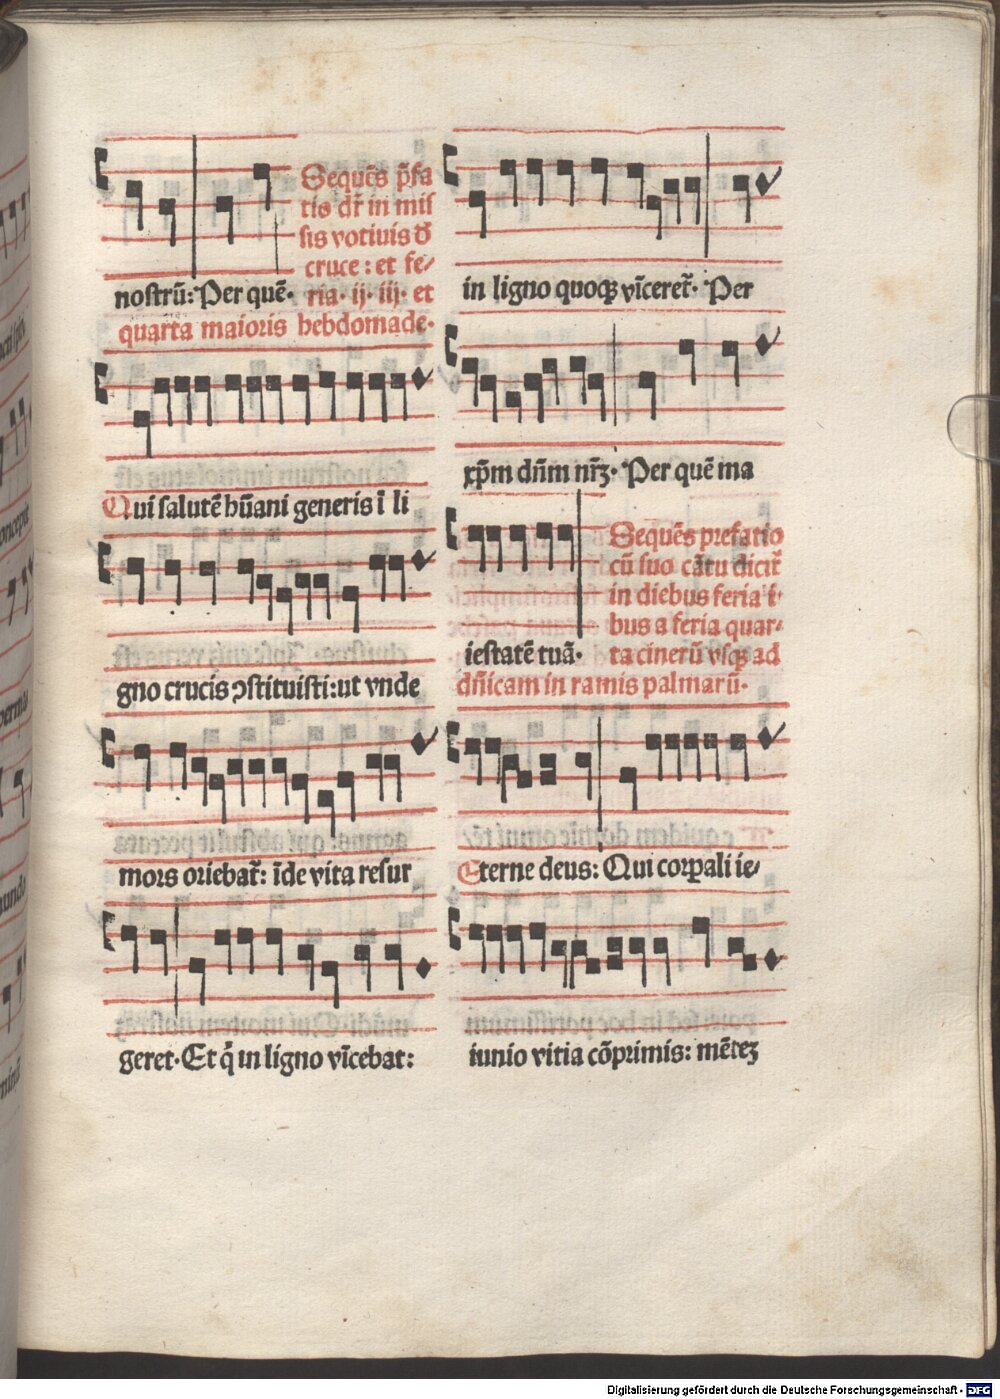 Sequēs p̄fa
tis dr̄ in mis
sis votiuis d̄
cruce: et fe/
nostrū: Per quē· ria· ij· iij· et
quarta maioris hebdomade·
Qui salutē hūani generis ī li
gno crucis ↄstituisti: ut vnde
mors oriebat᷑: īde vita resur
geret· Et q̄ in ligno vīcebat:
in ligno quoqꝫ vīceret᷑· Per
xp̄m dn̄m nr̄ꝫ· Per quē ma
Sequēs prefatio
cū suo cātu dicit᷑
in diebus feria l·
bus a feria quar/
iestatē tuā· ta cinerū vsqꝫ ad
dn̄icam in ramis palmarū·
Eterne deus: Qui corꝑali ie/
iunio vitia cōprimis: mēteꝫ
Digitalisierung gefördert durch die Deutsche Forschungsgemeinschaft - DFG